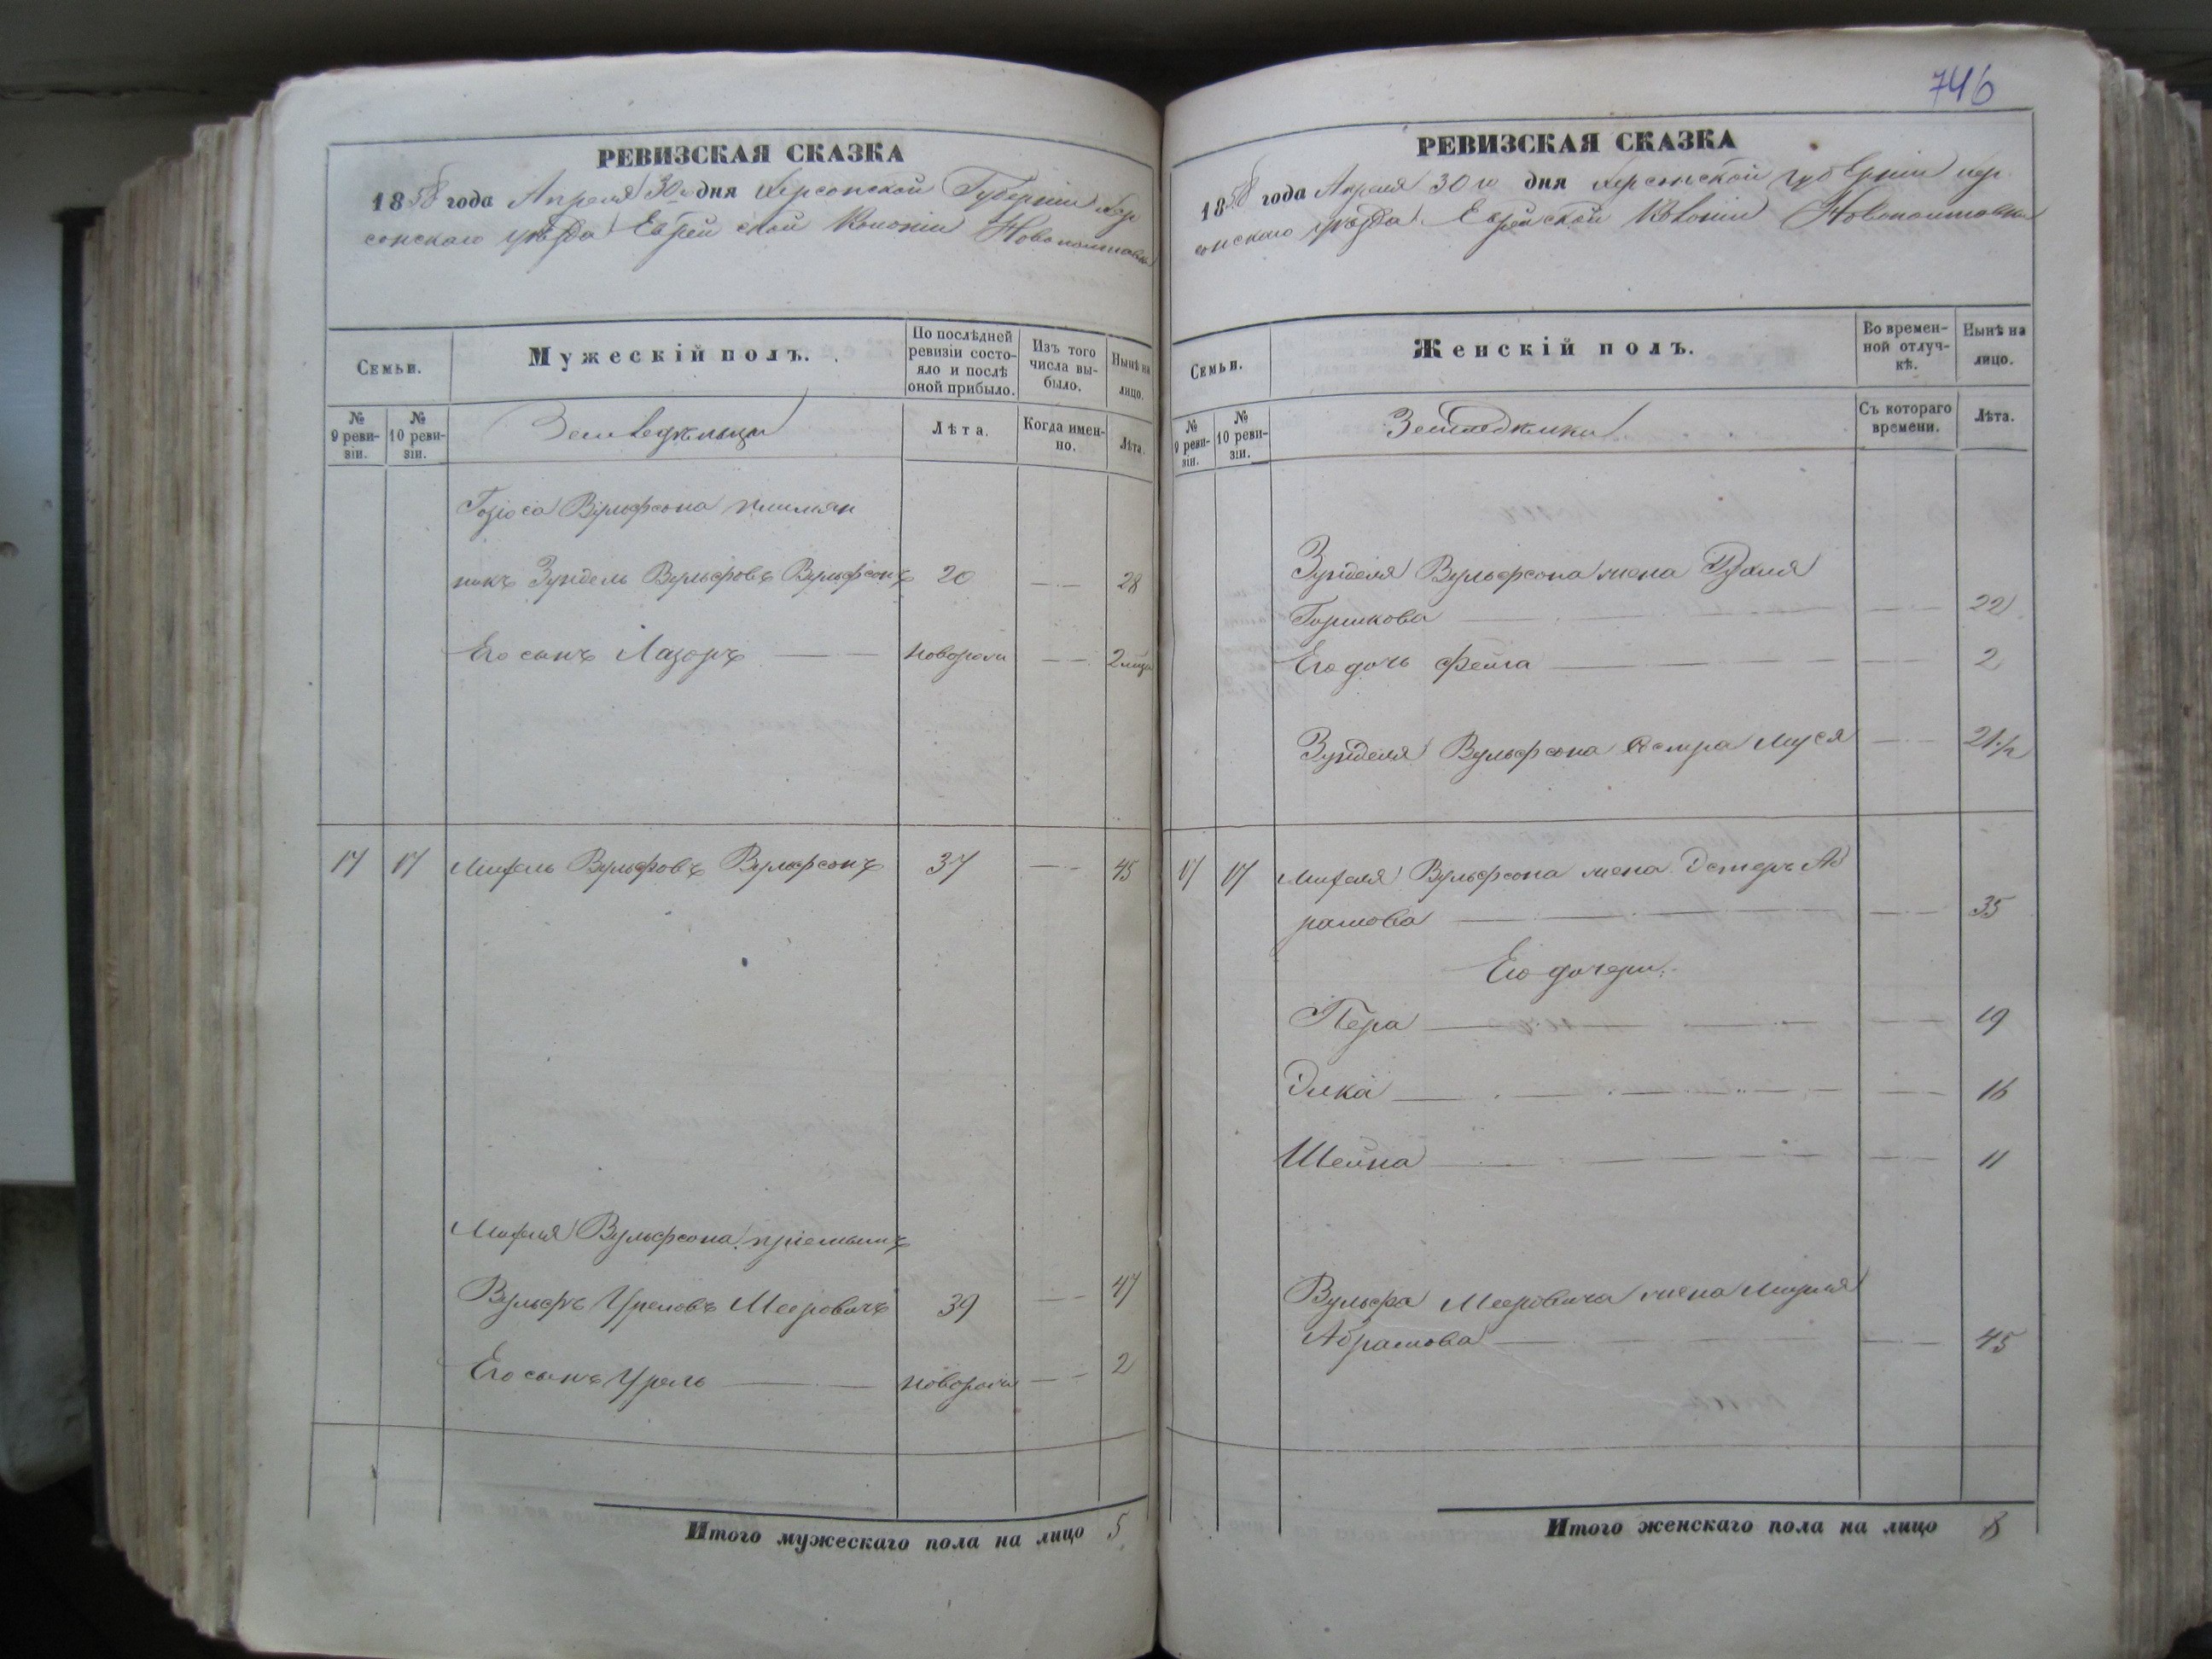 746
РЕВИЗСКАЯ СКАЗКА
1858 года Апреля 30го дня Херсонской Губерніи Хер
сонскаго уѣзда Еврейской Колоніи Новополтавки
Семьи.
Мужескій полъ.
По послѣдней ревизіи состояло и послѣ оной прибыло.
Изъ того числа выбыло.
Нынѣ на лицо.
№ 9 ревизіи.
№ 10 ревизіи.
Земледѣльцы
Лѣта.
Когда именно.
Лѣта.
Вульфсона племян
никъ Зундель Вульфовъ Вульфсонъ 20 28
Его сынъ Лазорь новорож 2 мѣся
17 17 Михель Вульфовъ Вульфсонъ 37 45
Михеля Вульфсона пріемышъ
Вульфъ Мееровичъ 39 47
Его сынъ новорож 2
Итого мужескаго пола на лицо 5
РЕВИЗСКАЯ СКАЗКА
1858 года Апреля 30го дня Херсонской губерніи Хер
сонскаго уѣзда Еврейской Колоніи Новополтавки
Семьи.
Женскій полъ.
Во временной отлучкѣ.
Нынѣ на лицо.
№ 9 ревизіи.
№ 10 ревизіи.
Земледѣлки
Съ котораго времени.
Лѣта.
Зунделя Вульфсона жена
Горшкова 22
Его дочь Фейга 2
Зунделя Вульфсона сестра Муся 21 1/2
17 17 Михеля Вульфсона жена Эстеръ Аб
рамова 35
Его дочери:
Пера 19
Элка 16
Шейна 11
Вульфа Мееровича жена
Абрамова 45
Итого женскаго пола на лицо 8